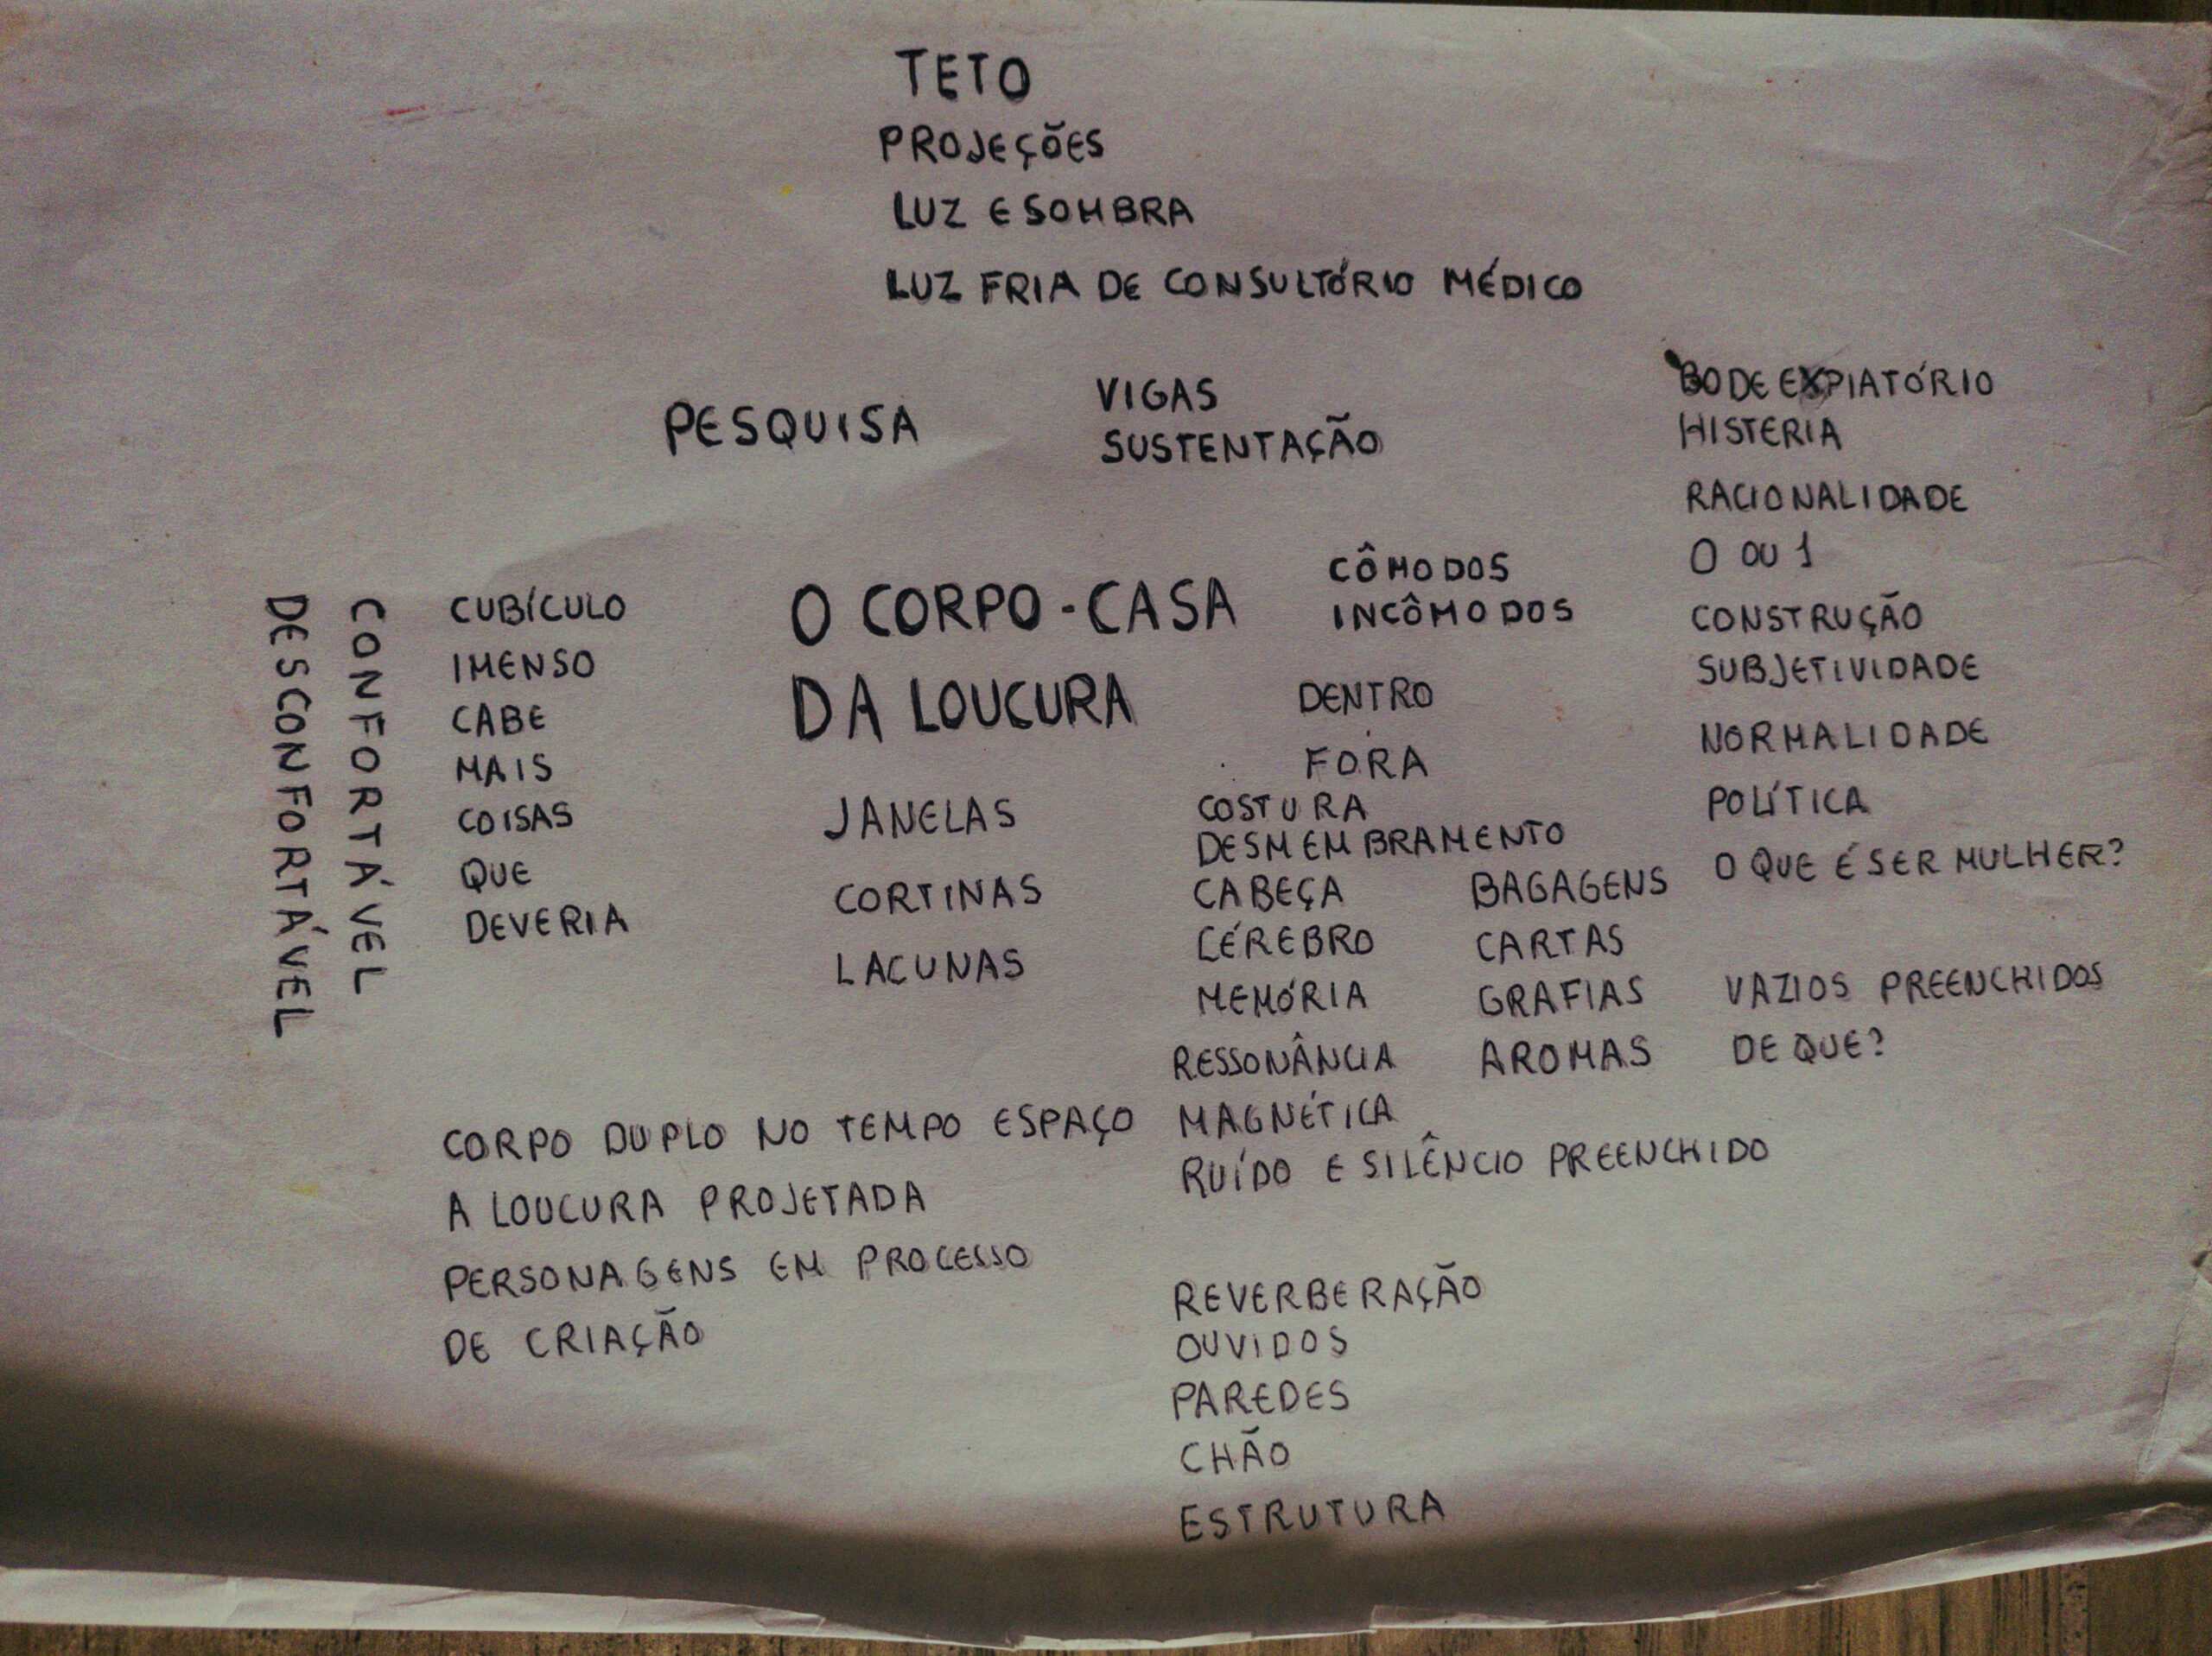 TETO
PROJEÇÕES
LUZ E SOMBRA
LUZ FRIA DE CONSULTÓRIO MÉDICO
PESQUISA
VIGAS
SUSTENTAÇÃO
BODE EXPIATÓRIO
HISTERIA
RACIONALIDADE
0 OU 1
CONSTRUÇÃO
SUBJETIVIDADE
NORMALIDADE
POLÍTICA
O QUE É SER MULHER?
VAZIOS PREENCHIDOS
DE QUE?
DESCONFORTÁVEL
CONFORTÁVEL
CUBÍCULO
IMENSO
CABE
MAIS
COISAS
QUE
DEVERIA
O CORPO-CASA
DA LOUCURA
JANELAS
CORTINAS
LACUNAS
CÔMODOS
INCÔMODOS
DENTRO
FORA
COSTURA
DESMEMBRAMENTO
CABEÇA
CÉREBRO
MEMÓRIA
RESSONÂNCIA
MAGNÉTICA
RUÍDO E SILÊNCIO PREENCHIDO
BAGAGENS
CARTAS
GRAFIAS
AROMAS
CORPO DUPLO NO TEMPO ESPAÇO
A LOUCURA PROJETADA
PERSONAGENS EM PROCESSO
DE CRIAÇÃO
REVERBERAÇÃO
OUVIDOS
PAREDES
CHÃO
ESTRUTURA